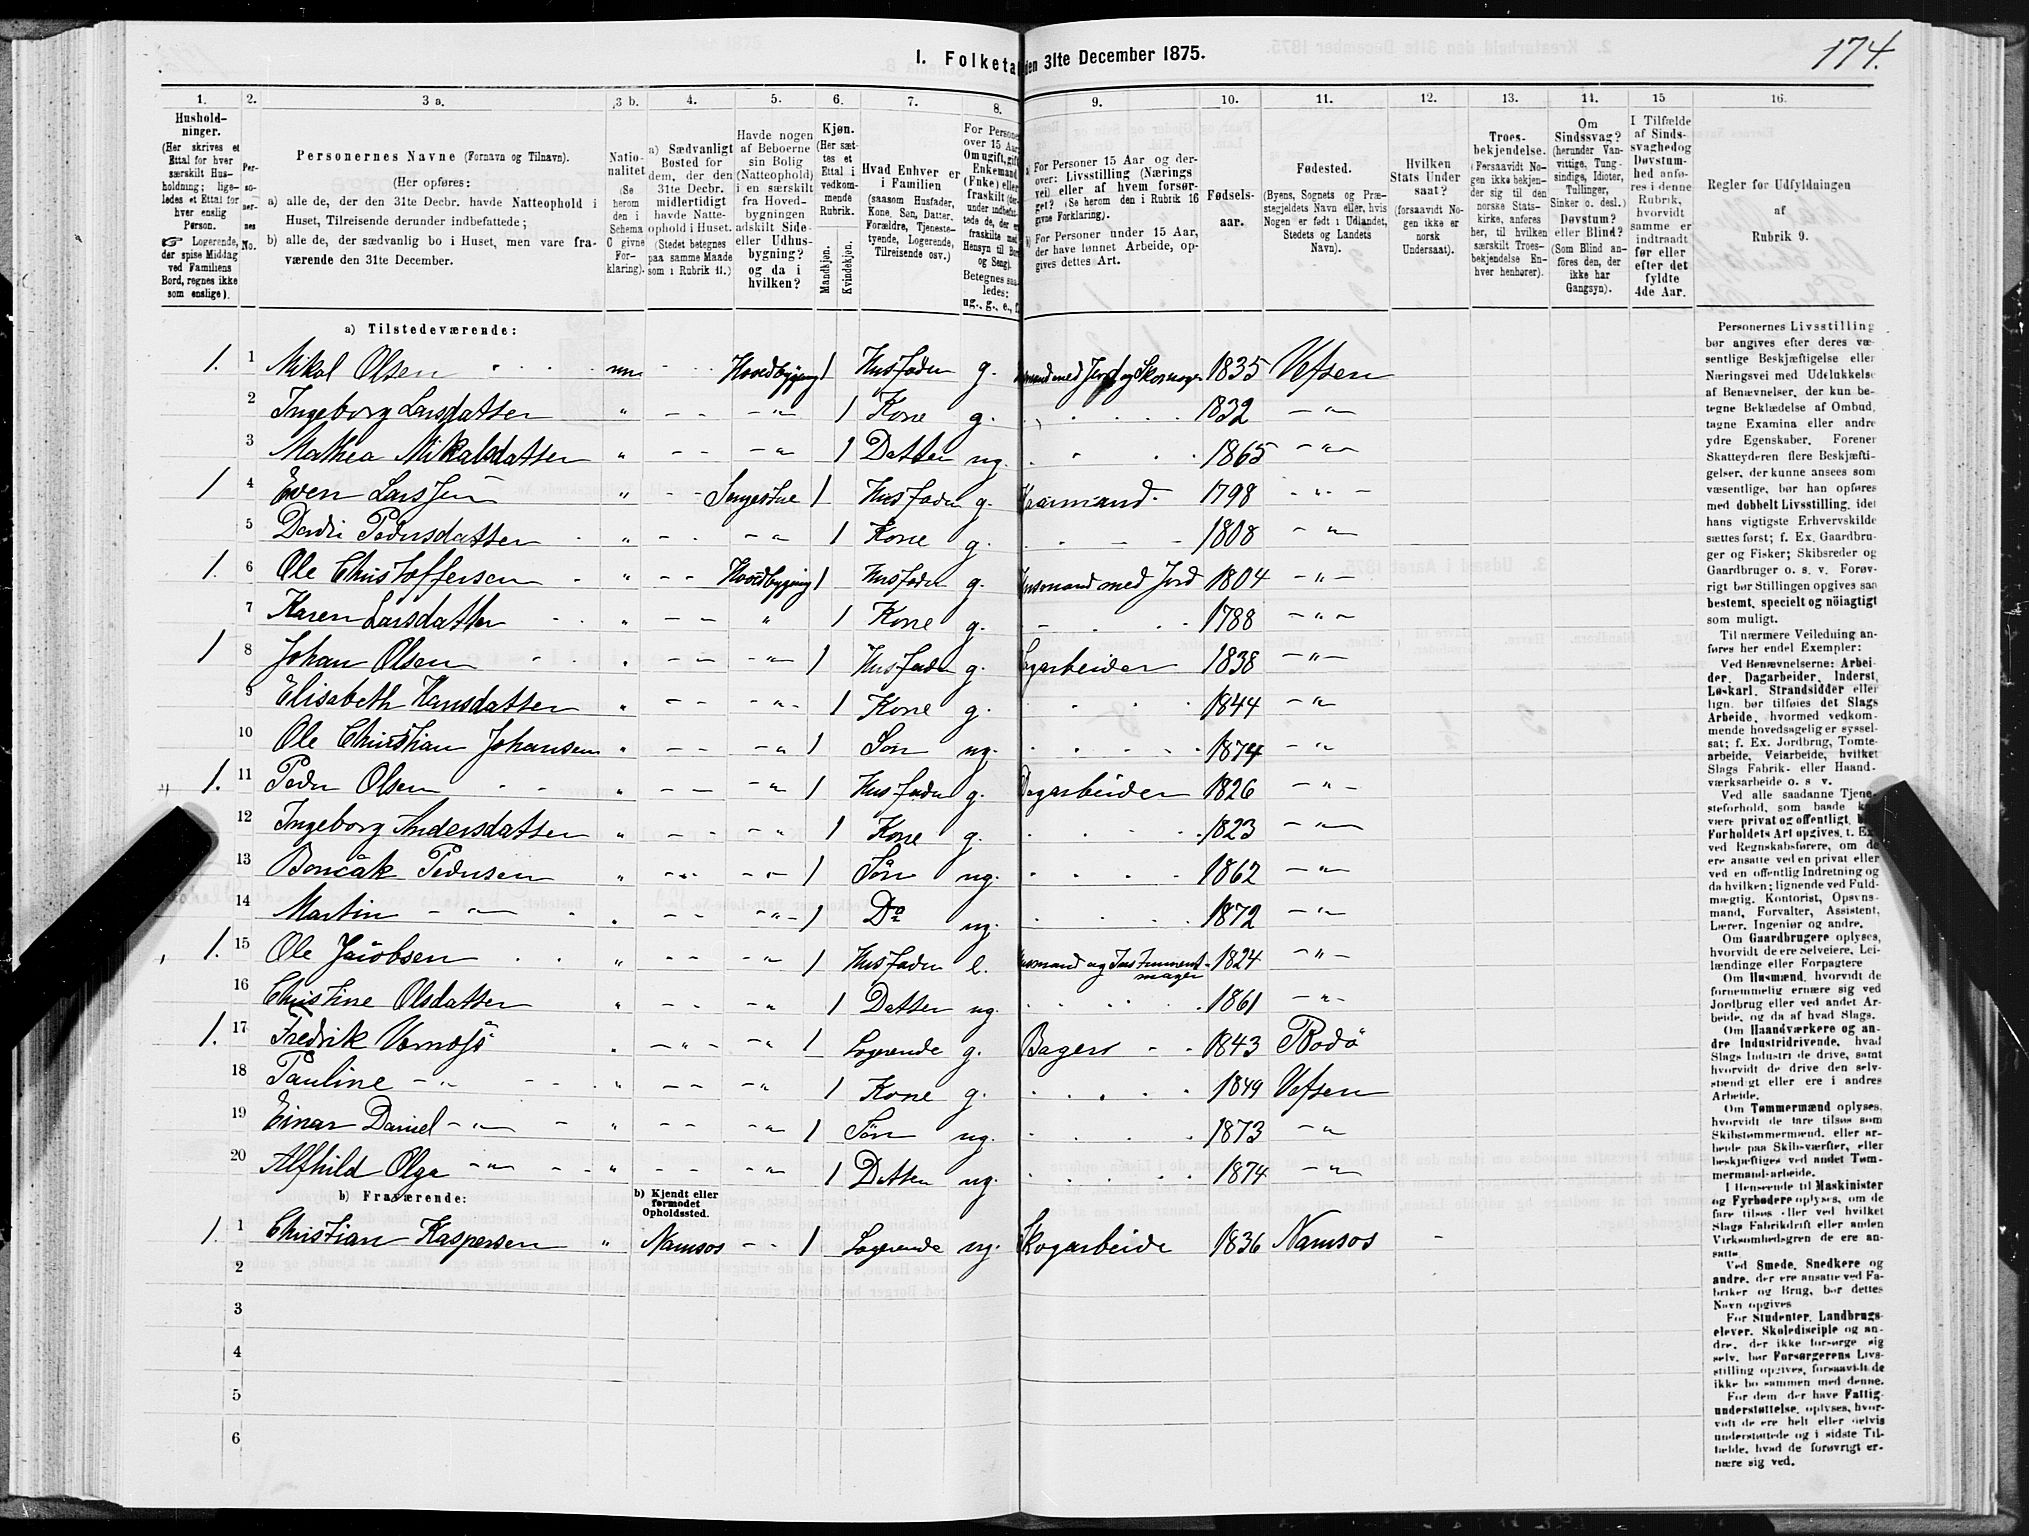 174.
I. Folketæ den 31te December 1875.
1. 2. 3 a. 3 b. 4. 5. 6. 7. 8. 9. 10. 11. 12. 13. 14. 15 16.
Hushold-
ninger.
(Her skrives et
Ettal for hver
særskilt Hus-
holdning; lige-
ledes et Ettal for
hver enslig
Person.
☞ Logerende,
der spise Middag
ved Familiens
Bord, regnes ikke
som enslige).
Per-
so-
ner-
nes
No.
Personernes Navne (Fornavn og Tilnavn).
(Her opføres:
a) alle de, der den 31te Decbr. havde Natteophold i
Huset, Tilreisende derunder indbefattede;
b) alle de, der sædvanlig bo i Huset, men vare fra-
værende den 31te December.
Natio-
nalitet
(Se
herom
den i
Schema
C givne
For-
klaring).
a) Sædvanligt
Bosted for
dem, der den
31te Decbr.
midlertidigt
havde Natte-
ophold i Huset.
(Stedet betegnes
paa samme Maade
som i Rubrik 11.)
Havde nogen
af Beboerne
sin Bolig
(Natteophold)
i en særskilt
fra Hoved-
bygningen
adskilt Side-
eller Udhus-
bygning?
og da i
hvilken?
Kjøn.
(Her sæt-
tes et
Ettal i
vedkom-
mende
Rubrik.
Mandkjøn.
Kvindekjøn.
Hvad Enhver er
i Familien
(saasom Husfader,
Kone, Søn, Datter,
Forældre, Tjeneste-
tyende, Logerende,
Tilreisende osv.)
For Persone
over 15 Aar:
Om ugift, gift
Enkemand
(Enke) eller
fraskilt
Hensyn til Bor
og Seng).
Betegnes saa-
ledes:
ug., g., e., f.
a) For Personer 15 Aar og der-
over: Livsstilling (Nærings
vei) eller af hvem forsør-
get? (Se herom den i Rubrik 16
givne Forklaring).
b) For Personer under 15 Aar,
der have lønnet Arbeide, op-
gives dettes Art.
Fødsels-
aar.
Fødested.
(Byens, Sognets og Præ-
stegjeldets Navn eller, hvis
Nogen er født i Udlandet,
Stedets og Landets
Navn).
Hvilken
Stats Under
saat?
(forsaavidt No-
gen ikke er
norsk
Undersaat).
Troes-
bekjendelse.
(Forsaavidt No-
gen ikke bekjen-
der sig til den
norske Stats-
kirke, anføres
her, til hvilken
særskilt Troes-
bekjendelse En-
hver henhører).
Om
Sindssvag?
(herunder Van-
vittige, Tung-
sindige, Idioter,
Tullinger,
Sinker o. desl.)
Døvstum?
eller Blind?
(Som Blind an-
føres den, der
ikke har
Gangsyn).
I Tilfælde
af Sinds-
svaghed og
Døvstum-
hed anfø-
res i denne
Rubrik,
hvorvidt
samme er
indtraadt
før eller
efter det
fyldte
4de Aar.
Regler for Udfyldningen
af
Rubrik 9.
a) Tilstedeværende:
1. 1 Mikal Olsen nn Hovedbygning 1 Husfader g. med Jord og Skomager 1835 Vefsen
2 Ingeborg Larsdatter " " 1 Kone g. 1832 "
3 Mathea Mikalsdatter " " 1 Datter ug. 1865 "
1 4 Even Larssen " Sengestue 1 Husfader g. Kaarmand 1798 "
5 Pedersdatter " " 1 Kone g. 1808 "
1. 6 Ole Christoffersen " Hovedbygning 1 Husfader g. Husmand med Jord 1804 "
7 Karen Larsdatter " " 1 Kone g. 1788 "
1 8 Johan Olsen " " 1 Husfader g. Dagarbeider 1838 "
9 Elisabeth Hansdatter " " 1 Kone g. 1844 "
10 Ole Christian Johansen " " 1 Søn ug. 1874 "
1. 11 Peder Olsen " " 1 Husfader g. Dagarbeider 1826 "
12 Ingeborg Andersdatter " " 1 Kone g. 1823 "
13 Pedersen " " 1 Søn ug. 1862 "
14 Martin " " " 1 Do ug. 1872 "
1. 15 Ole Jacobsen " " 1 Husfader e. Husmand og Instrument-
mager 1824 "
16 Christine Olsdatter " " 1 Datter ug. 1861 "
1. 17 Fredrik " " 1 Logerende g. Bager 1843 Bodö
18 Pauline " " " 1 Kone g. 1849 Vefsen
19 Einar Daniel " " " 1 Søn ug. 1873 "
20 Alfhild Olga " " " 1 Datter ug. 1874 "
b) Fraværende:
b) Kjendt eller
formodet
Opholdssted.
1. 1 Christian Kaspersen " Namsos 1 Logerende ug. Skogarbeide 1836 Namsos
2
3
4
5
6
Personernes Livsstilling
bør angives efter deres væ-
sentlige Beskjæftigelse eller
Næringsvei med Udelukkelse
af Benævnelser, der kun be-
tegne Beklædelse af Ombud,
tagne Examina eller andre
ydre Egenskaber. Forener
Skatteyderen flere Beskjæfti-
gelser, der kunne ansees som
væsentlige, bør han opføres
med dobbelt Livsstilling, idet
hans vigtigste Erhvervskilde
sættes først; f. Ex. Gaardbru-
ger og Fisker; Skibsreder og
Gaardbruger o. s. v. Forøv-
rigt bør Stillingen opgives saa
bestemt, specielt og nöiagtigt
som muligt.
Til nærmere Veiledning an-
føres her endel Exempler:
Ved Benævnelserne: Arbei-
der, Dagarbeider, Inderst,
Løskarl, Strandsidder eller
lign. bør tilføies det Slags
Arbeide, hvormed vedkom-
mende hovedsagelig er syssel-
sat; f. Ex. Jordbrug, Tomte-
arbeide, Veiarbeide, hvilket
Slags Fabrik- eller Haand-
værksarbeide o. s. v.
Ved alle saadanne Tjene-
steforhold, som baade
være privat og offentligt,
Forholdets Art opgives, t. Ex.
ved Regnskabsførere, om de
ere ansatte ved en privat eller
ved en offentlig Indretning og
da hvilken; lignende ved Fuld-
mægtig, Kontorist, Opsyns-
mand, Forvalter, Assistent,
Lærer, Ingeniør og andre.
Om Gaardbrugere oplyses,
hvorvidt de ere Selveiere, Lei-
lændinge eller Forpagtere
Om Husmænd, hvorvidt de
fornemmelig ernære sig ved
Jordbrug eller ved andet Ar-
beide, og da af hvad Slags.
Om Haandværkere og an-
dre Industridrivende, hvad
Slags Industri de drive, samt
hvorvidt de drive den selv-
stændigt eller ere i andres
Arbeide.
Om Tømmermænd oplyses,
hvorvidt de fare tilsøs som
Skibstømmermænd, eller ar-
beide paa Skibsværfter, eller
beskjæftiges ved andet Tøm-
mermandsarbeide.
I Henseende til Maskinister
og Fyrbødere oplyses, om de
fare tilsøs eller ved hvilket
Slags Fabrikdrift eller anden
Virksomhedsgren de ere an-
satte.
Ved Smede, Snedkere og
andre, der ere ansatte ved Fa-
briker og Brug, bør dettes
Navn opgives
For Studenter, Landbrugs-
elever, Skoledisciple og an-
dre, der ikke forsørge sig
selv, bør Forsørgerens Livs-
stilling opgives, forsaavidt de
ikke bo sammen med denne.
For dem, der have Fattig-
understøttelse, oplyses, hvor-
vidt de ere helt eller delvis
understøttede og i sidste Til-
fælde, hvad de forøvrigt er-
nære sig ved.